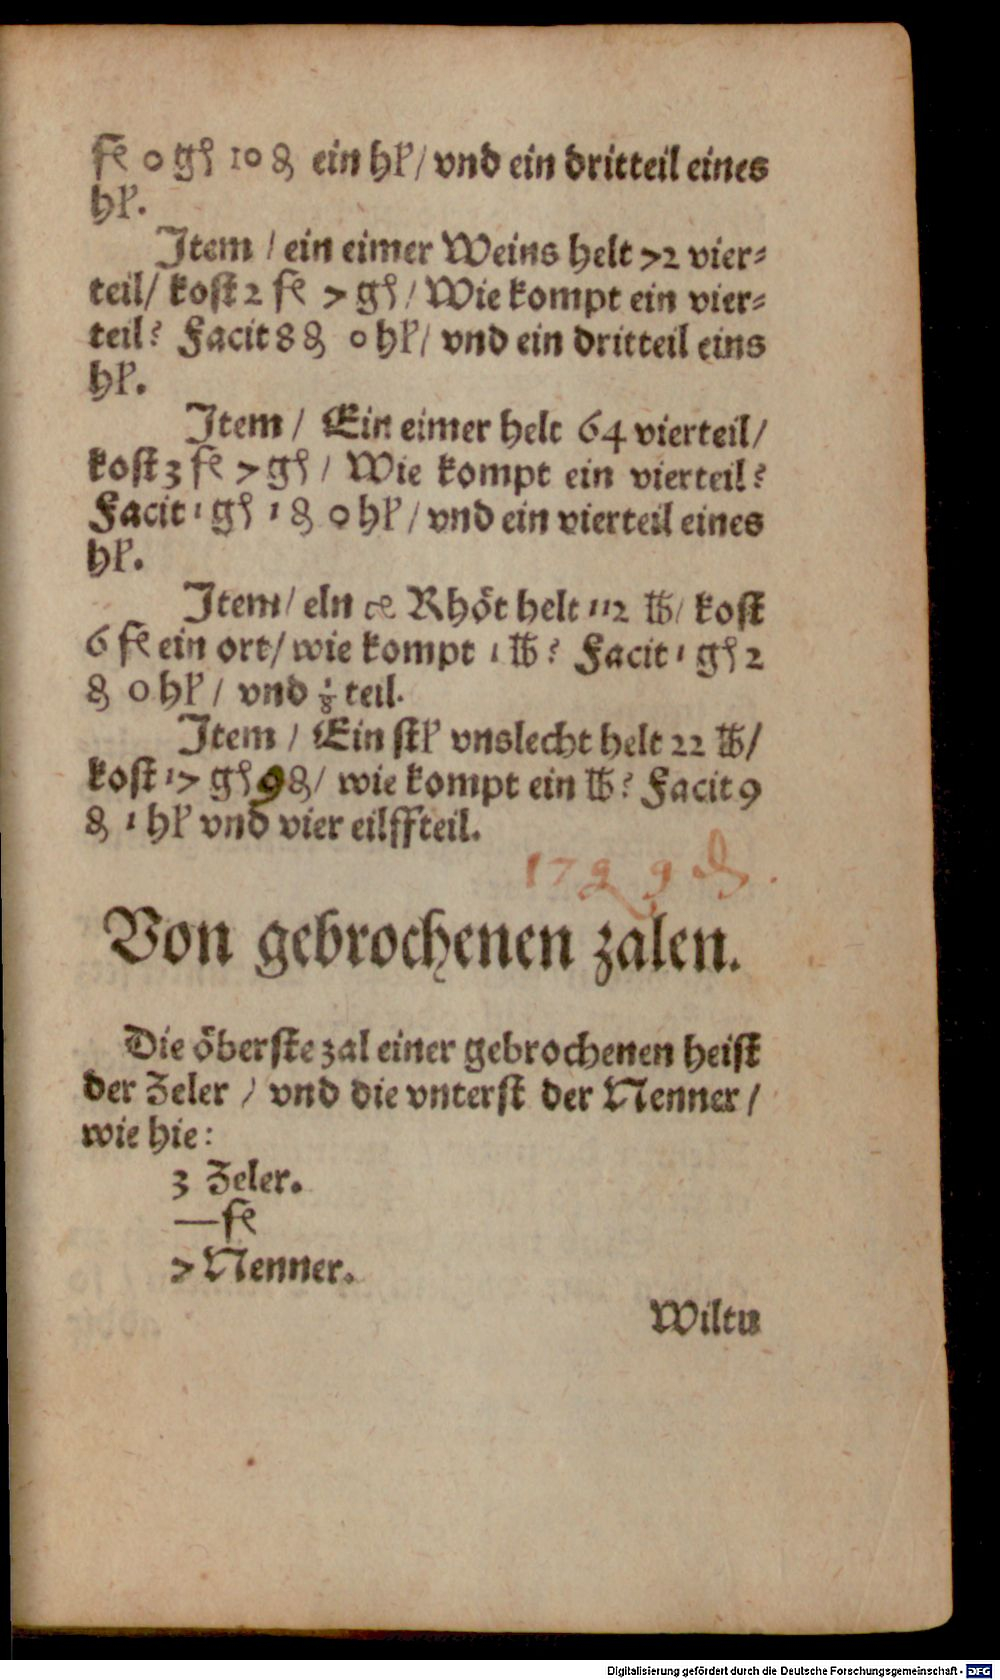 fl 0 gſ 10 ₰ ein hl̵/ vnd ein dritteil eines
hl̵.
Item / ein eimer Weins helt 72 vier⸗
teil/ kost 2 fl 7 gſ / Wie kompt ein vier⸗
teil? Facit 8 ₰ 0 hl̵/ vnd ein dritteil eins
hl̵.
Item / Ein eimer helt 64 vierteil/
kost 3 fl 7 gſ / Wie kompt ein vierteil?
Facit 1 gſ 1 ₰ 0 hl̵ / vnd ein vierteil eines
hl̵.
Item/ eln Rhöt helt 112 ℔/ kost
6 fl ein ort/ wie kompt 1 ℔? Facit 1 gſ 2
₰ 0 hl̵ / vnd 1/8 teil.
Item / Ein stk̵ vnslecht helt 22 ℔/
kost 17 gſ 9 ₰/ wie kompt ein ℔? Facit 9
₰ 1 hl̵ vnd vier eilffteil.
17 g 9 ₰.
Von gebrochenen zalen.
Die öberste zal einer gebrochenen heist
der Zeler / vnd die vnterst der Nenner /
wie hie:
3 Zeler.
— fl
7 Nenner.
Wiltu
Digitalisierung gefördert durch die Deutsche Forschungsgemeinschaft - DFG